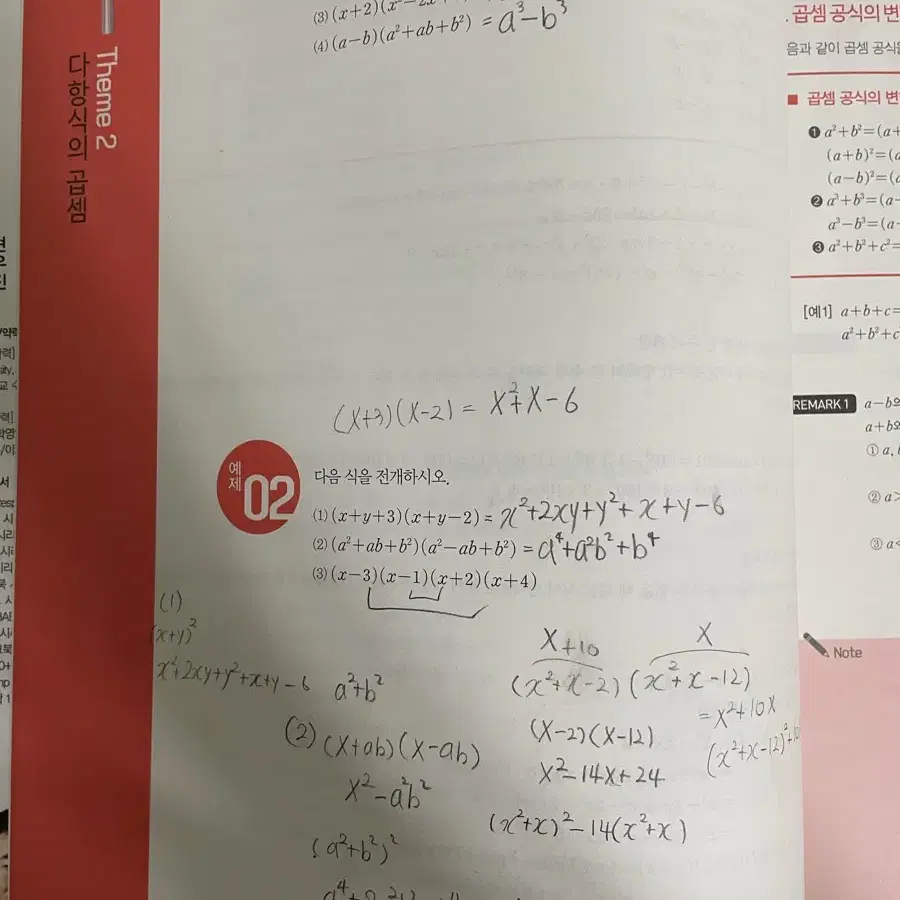 Theme 2
다항식의 곱셈
(3) (x+2)(x²−2x
(4) (a−b)(a²+ab+b²) = a³−b³
(x+3)(x−2) = x²+x−6
예제 02
다음 식을 전개하시오.
(1) (x+y+3)(x+y−2) = x²+2xy+y²+x+y−6
(2) (a²+ab+b²)(a²−ab+b²) = a⁴+a²b²+b⁴
(3) (x−3)(x−1)(x+2)(x+4)
(1)
(x+y)²
x²+2xy+y²+x+y−6
a²+b²
(2) (x+ab)(x−ab)
x²−a²b²
(a²+b²)²
x+10 x
(x²+x−2)(x²+x−12)
=x²+10x
(x²+x−12)²+10
(x−2)(x−12)
x²−14x+24
(x²+x)²−14(x²+x)
. 곱셈 공식의 변
음과 같이 곱셈 공식을
■ 곱셈 공식의 변
❶ a²+b²=(a+
(a+b)²=(a
(a−b)²=(a
❷ a³+b³=(a
a³−b³=(a
❸ a²+b²+c²=
[예1] a+b+c=
a²+b²+c
REMARK 1 a−b의
a+b의
① a,
② a>
③ a<
Note